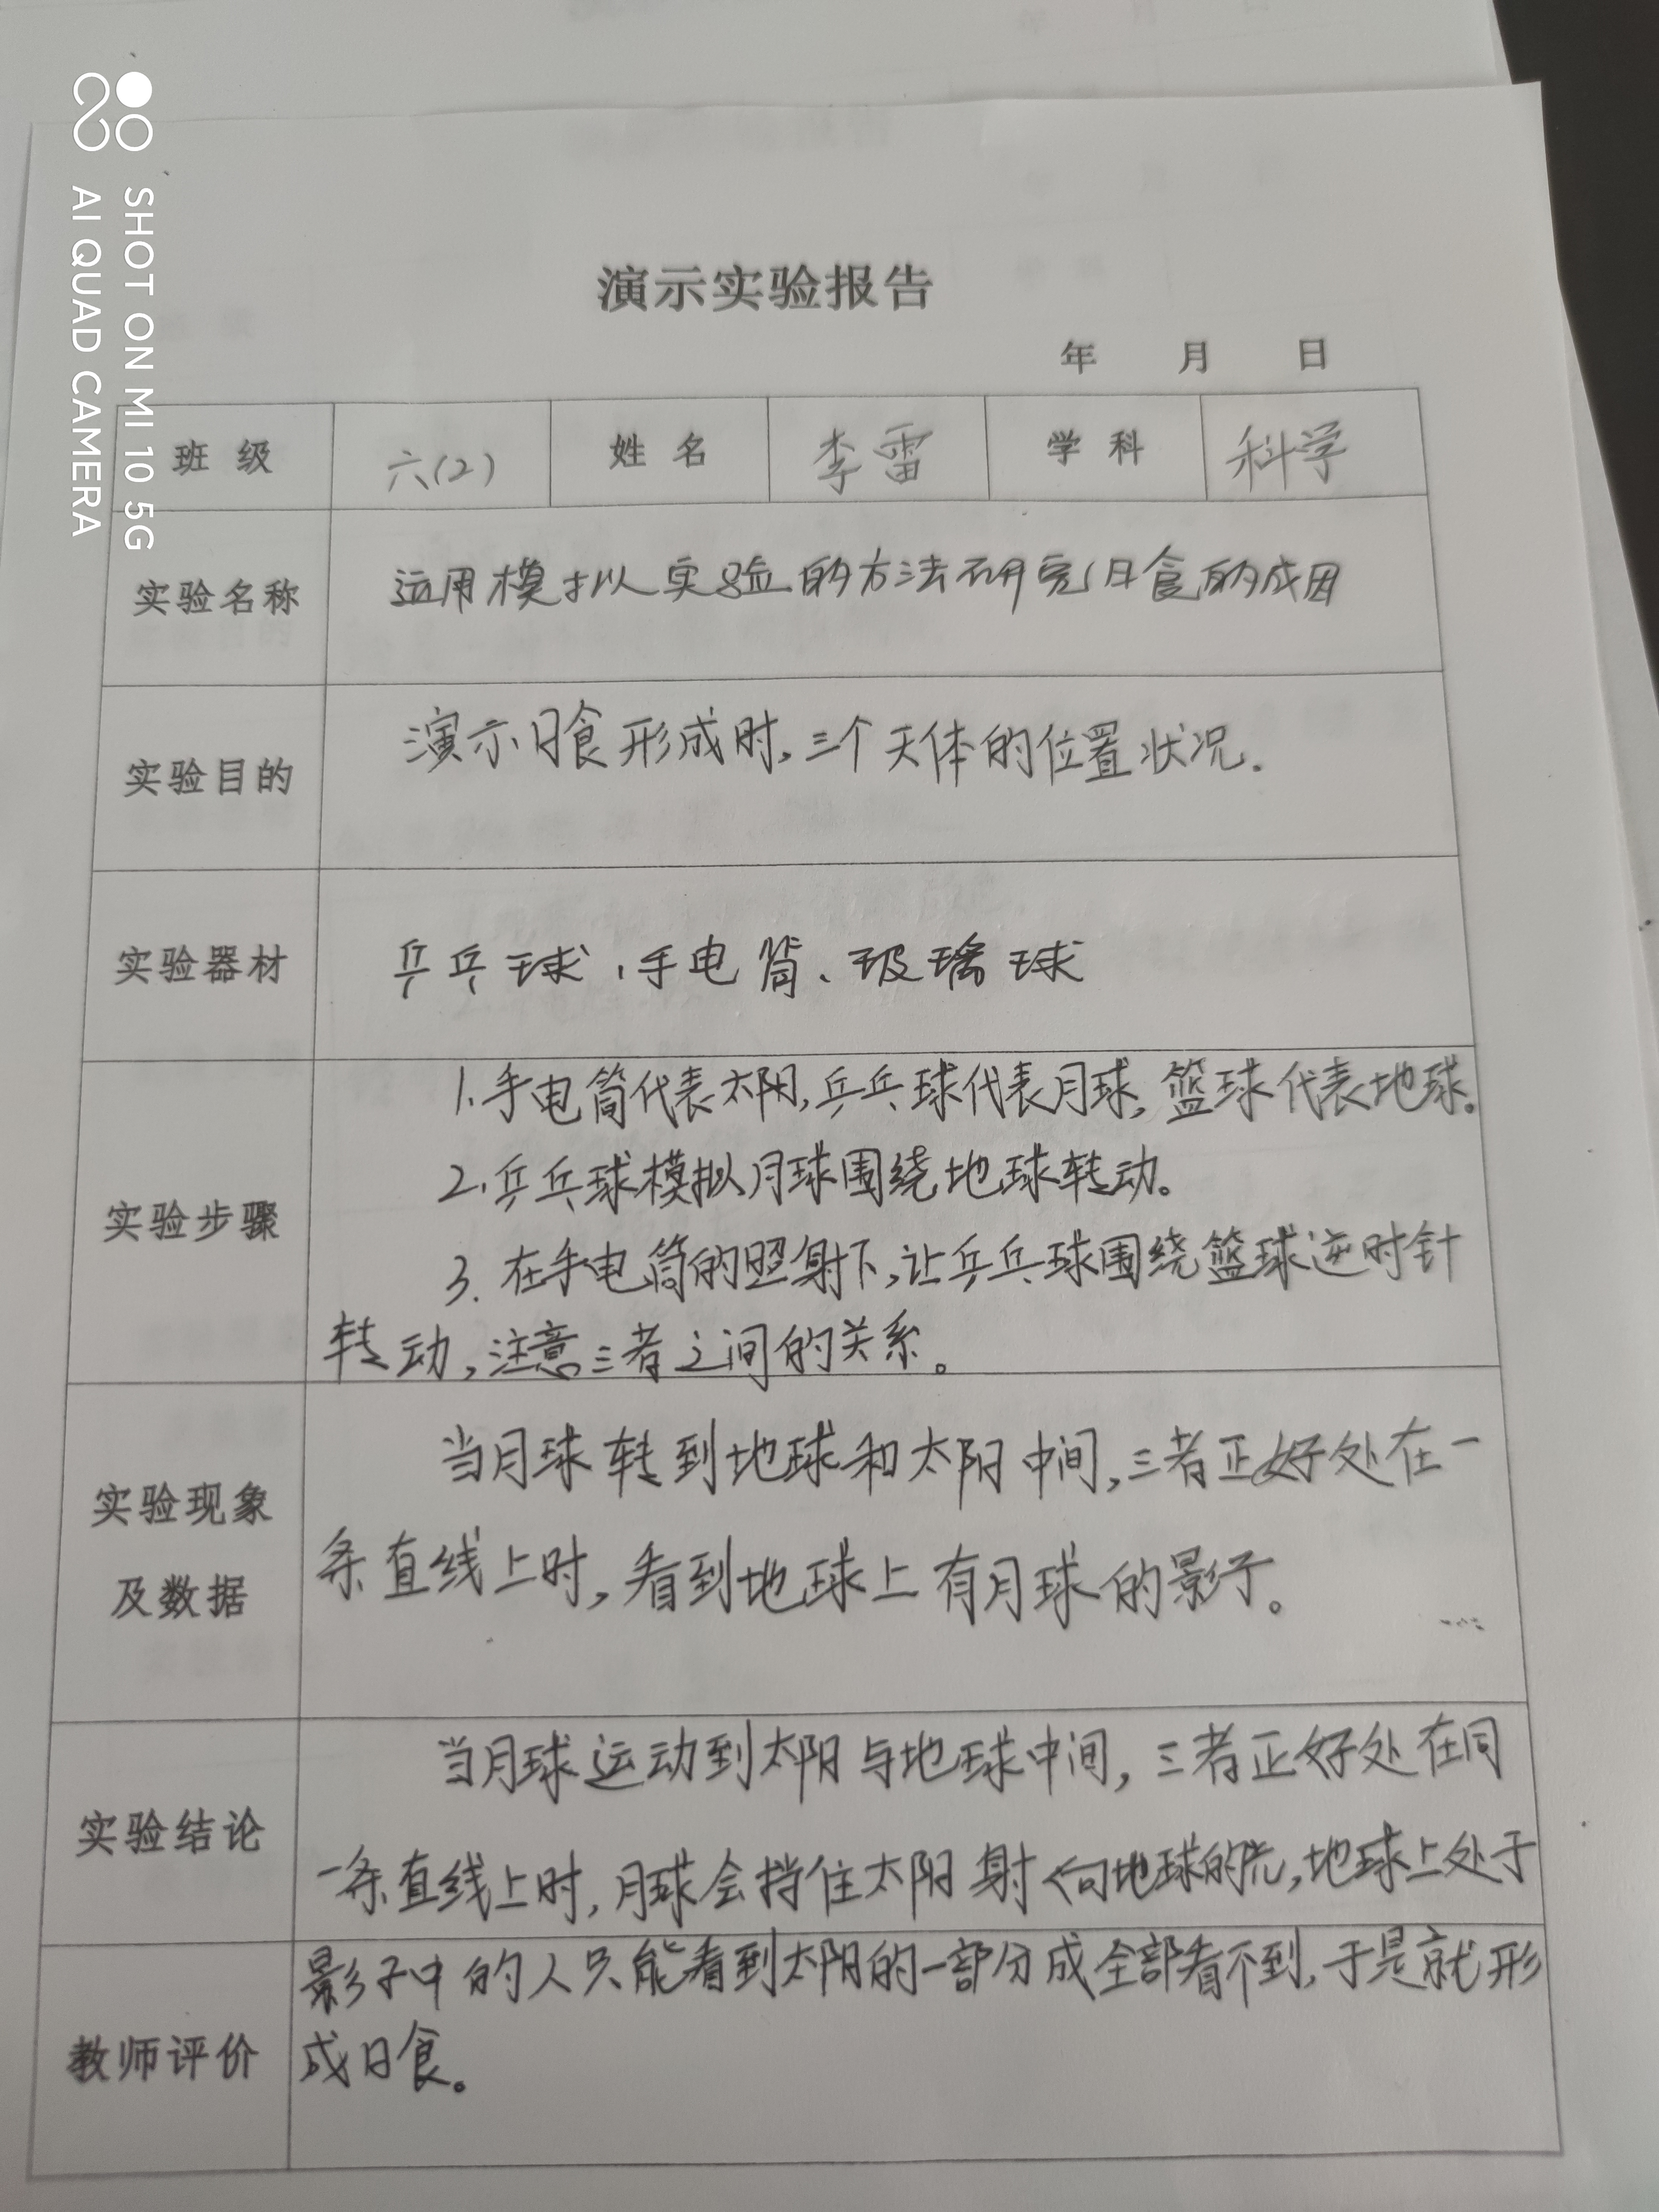 SHOT ON MI 10 5G
AI QUAD CAMERA
演示实验报告
年 月 日
班 级 六(2) 姓 名 李雷 学 科 科学
实验名称 运用模拟实验的方法研究日食的成因
实验目的 演示日食形成时,三个天体的位置状况.
实验器材 乒乓球、手电筒、玻璃球
1.手电筒代表太阳,乒乓球代表月球,篮球代表地球。
2.乒乓球模拟月球围绕地球转动。
实验步骤
3.在手电筒的照射下,让乒乓球围绕篮球逆时针
转动,注意三者之间的关系。
当月球转到地球和太阳中间,三者正好处在一
实验现象
条直线上时,看到地球上有月球的影子。
及数据
当月球运动到太阳与地球中间,三者正好处在同
实验结论
一条直线上时,月球会挡住太阳射向地球的光,地球上处于
影子中的人只能看到太阳的一部分成全部看不到,于是就形
教师评价 成日食。